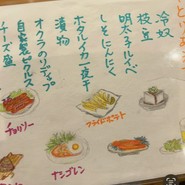 冷奴
枝豆
明太子ルイベ
しそにんにく
ホタルイカ一夜干
漬物
オクラのソディップ
自家製ピクルス
チーズ盛
チョリソー
フライドポテト
ナシゴレン